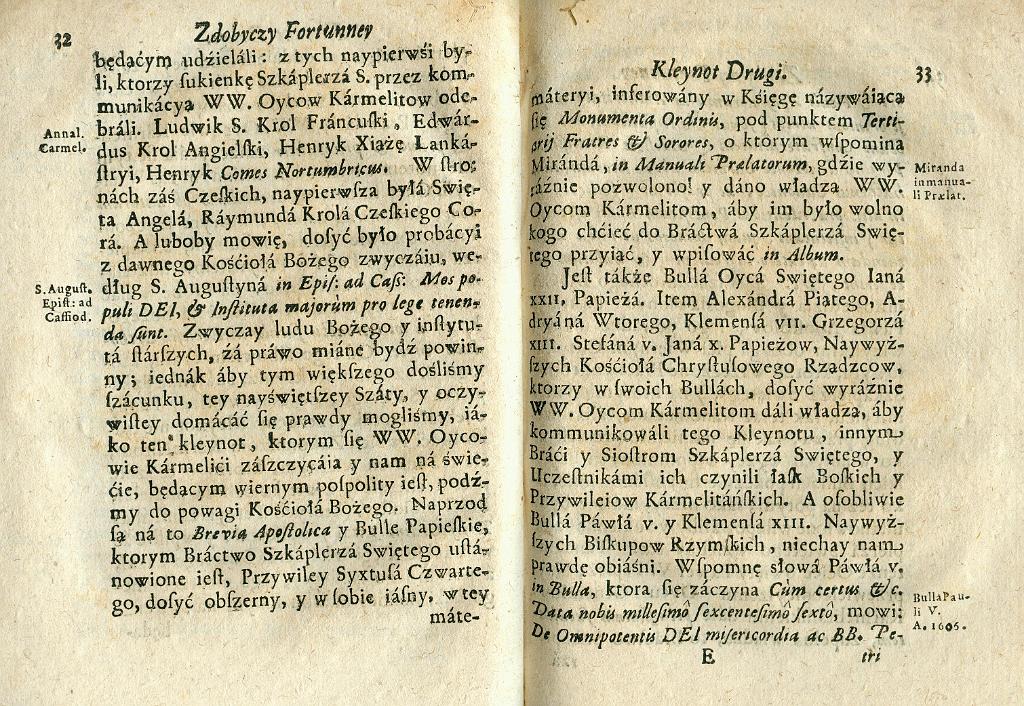 32 Zdobyczy Fortunney
będącym udźieláli : z tych naypierwśi by-
li, ktorzy ſukienkę Szkáplerzá S. przez kom-
munikácyą WW. Oycow Kármelitow ode-
Annal. Carmel.
bráli. Ludwik S. Krol Fráncuſki, Edwár-
dus Krol Angielſki, Henryk Xiążę Lanká-
ſtryi, Henryk Comes Nortumbricus. W ſtro-
nách záś Czeſkich, naypierwſza byłá Swię-
ta Angelá, Ráymundá Krolá Czeſkiego Co-
rá. A luboby mowię, doſyć było probácyi
z dawnego Kośćiołá Bożego zwyczáiu, we-
S. Auguſt. Epiſt: ad Caſſiod.
dług S. Auguſtyná in Epiſ: ad Caſſ: Mos po-
puli DEI, & Inſtituta majorùm pro lege tenen-
da ſunt. Zwyczay ludu Bożego y inſtytu-
tá ſtárſzych, źá práwo miáne bydź powin-
ny; iednák áby tym większego doſliśmy
ſzácunku, tey nayświętſzey Száty, y oczy-
wiſtey domácáć się prawdy mogliśmy, iá-
ko ten kleynot, ktorym się WW. Oyco-
wie Kármelići zászczycáią y nam ná świe-
ćie, będącym wiernym poſpolity ieſt, podź-
my do powagi Kośćiołá Bożego. Naprzod
ſą ná to Brevia Apoſtolica y Bulle Papieſkie,
ktorym Bráctwo Szkáplerzá Swiętego uſtá-
nowione ieſt, Przywiley Syxtuſá Czwarte-
go, doſyć obſzerny, y w ſobie iáſny, w tey
máte-
Kleynot Drugi. 33
máteryi, inferowány w Kśięgę názywáiącą
się Monumenta Ordinis, pod punktem Terti-
arij Fratres & Sorores, o ktorym wſpomina
Miranda in manua- li Prælat.
Mirándá, in Manuali Prælatorum, gdzie wy-
ráźnie pozwolono! y dáno władzą WW.
Oycom Kármelitom, áby im było wolno
kogo chćieć do Bráctwá Szkáplerzá Swię-
tego przyiąć, y wpiſowáć in Album.
Jeſt tákże Bullá Oycá Swiętego Ianá
XXII. Papieżá. Item Alexándrá Piątego, A-
dryáná Wtorego, Klemenſá VII. Grzegorzá
XIII. Stefáná V. Janá X. Papieżow, Naywyż-
ſzych Kośćiołá Chryſtuſowego Rządzcow,
ktorzy w ſwoich Bullách, doſyć wyráźnie
WW. Oycom Kármelitom dáli władzą, áby
kommunikowáli tego Kleynotu, innym
Bráći y Sioſtrom Szkáplerzá Swiętego, y
Uczeſtnikámi ich czynili łaſk Boſkich y
Przywileiow Kármelitáńſkich. A oſobliwie
Bullá Páwłá V. y Klemenſá XIII. Naywyż-
ſzych Biſkupow Rzymſkich, niechay nam
prawdę obiáśni. Wſpomnę słowá Páwłá V.
Bulla Pau- li V. A. 1606.
in Bulla, ktora się záczyna Cùm certus &c.
Data nobis milleſimô ſexcenteſimô ſextô, mowi:
De Omnipotentis DEI miſericordia ac BB. Pe-
E tri